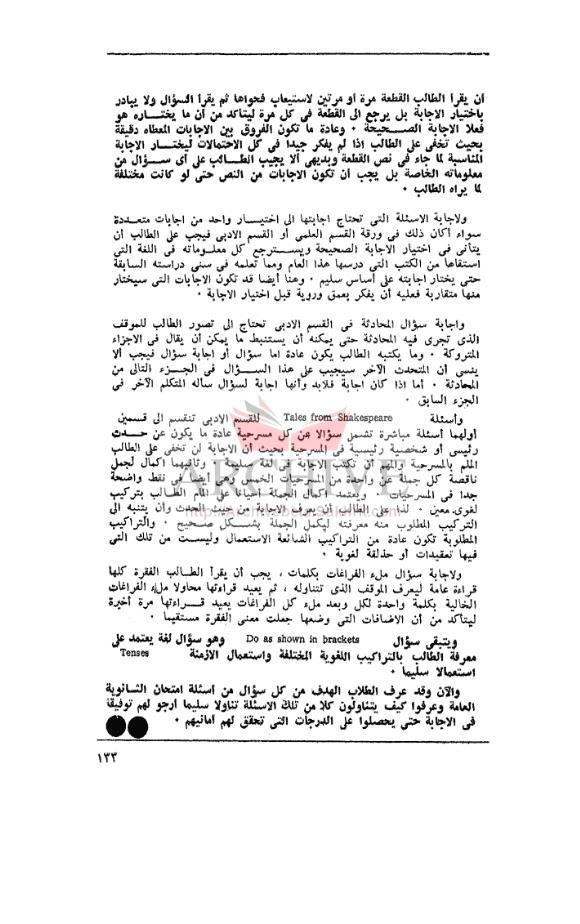 أن يقرأ الطالب القطعة مرة أو مرتين لاستيعاب فحواها ثم يقرأ السؤال ولا يبادر
باختيار الاجابة بل يرجع الى القطعة في كل مرة ليتأكد من أن ما يختـــاره هو
فعلا الاجابة الصــحيحة ٠ وعادة ما تكون الفروق بين الاجابات المعطاه دقيقة
بحيث تخفى على الطالب اذا لم يفكر جيدا في كل الاحتمالات ليختــار الاجابة
المناسبة لما جاء في نص القطعة وبديهى ألا يجيب الطــالب على أى ســؤال من
معلوماته الخاصة بل يجب أن تكون الاجابات من النص حتى لو كانت مختلفة
لما يراه الطالب ٠
ولاجابة الاسئلة التى تحتاج اجابتها الى اختيــار واحد من اجابات متعــددة
سواء أكان ذلك في ورقة القسم العلمى أو القسم الادبى فيجب على الطالب أن
يتأنى في اختيار الاجابة الصحيحة ويســترجع كل معلــوماته في اللغة التى
استقاها من الكتب التى درسها هذا العام ومما تعلمه في سنى دراسته السابقة
حتى يختار اجابته على أساس سليم ٠ وهنا أيضا قد تكون الاجابات التى سيختار
منها متقاربة فعليه أن يفكر بعمق وروية قبل اختيار الاجابة ٠
واجابة سؤال المحادثة في القسم الادبى تحتاج الى تصور الطالب للموقف
الذى تجرى فيه المحادثة حتى يمكنه أن يستنبط ما يمكن أن يقال في الاجزاء
المتروكة ٠ وما يكتبه الطالب يكون عادة اما سؤال أو اجابة سؤال فيجب ألا
ينسى أن المتحدث الآخر سيجيب على هذا الســـؤال في الجــزء التالى من
المحادثة ٠ أما اذا كان اجابة فلابد وأنها اجابة لسؤال سأله المتكلم الآخر في
الجزء السابق ٠
وأسئلة Tales from Shakespeare للقسم الادبى تنقسم الى قسمين
أولهما أسئلة مباشرة تشمل سؤالا عن كل مسرحية عادة ما يكون عن حــدث
رئيسى أو شخصية رئيسية في المسرحية بحيث أن الاجابة لن تخفى على الطالب
الملم بالمسرحية والمهم أن تكتب الاجابة في لغة سليمة ٠ وثانيهما اكمال لجمل
ناقصة كل جملة عن واحدة من المسرحيات الخمس وهى أيضا في نقط واضحة
جدا في المسرحيات ٠ ويعتمد اكمال الجملة أحيانا على المام الطــالب بتركيب
لغوى معين ٠ لذا على الطالب أن يعرف الاجابة من حيث الحدث وأن ينتبه الى
التركيب المطلوب منه معرفته ليكمل الجملة بشــكل صحيح ٠ والتراكيب
المطلوبة تكون عادة من التراكيب الشائعة الاستعمال وليســت من تلك التى
فيها تعقيدات أو حذلقة لغوية ٠
ولاجابة سؤال ملء الفراغات بكلمات ، يجب أن يقرأ الطــالب الفقرة كلها
قراءة عامة ليعرف الموقف الذى تتناوله ، ثم يعيد قراءتها محاولا ملء الفراغات
الخالية بكلمة واحدة لكل وبعد ملء كل الفراغات يعيد قــراءتها مرة أخيرة
ليتأكد من أن الاضافات التى وضعها جعلت معنى الفقرة مستقيما ٠
ويتبقى سؤال Do as shown in brackets وهو سؤال لغة يعتمد على
معرفة الطالب بالتراكيب اللغوية المختلفة واستعمال الازمنة Tenses
استعمالا سليما ٠
والآن وقد عرف الطلاب الهدف من كل سؤال من أسئلة امتحان الثــانوية
العامة وعرفوا كيف يتناولون كلا من تلك الاسئلة تناولا سليما أرجو لهم توفيقا
في الاجابة حتى يحصلوا على الدرجات التى تحقق لهم أمانيهم ٠
ARCHIVE
١٣٣